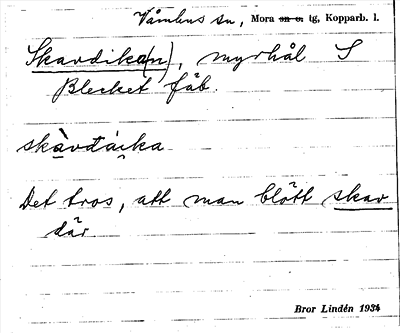 Våmhus sn, Mora sn o. tg, Kopparb. l.
Skavdika(n), myrhål S
Blecket fäb.
skàvđàika
Det tros, att man blött skav
där
Bror Lindén 1934